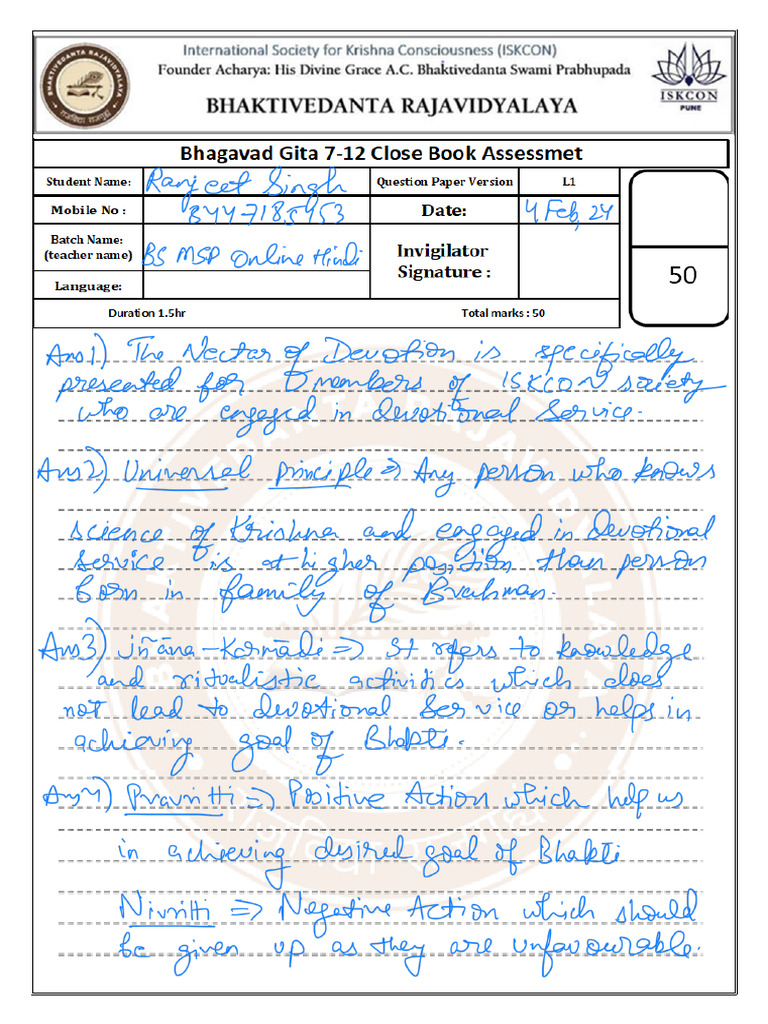 International Society for Krishna Consciousness (ISKCON)
Founder Acharya: His Divine Grace A.C. Bhaktivedanta Swami Prabhupada
BHAKTIVEDANTA RAJAVIDYALAYA
ISKCON
PUNE
Bhagavad Gita 7-12 Close Book Assessmet
Student Name: Ranjeet Singh Question Paper Version L1
Mobile No : 8447185953 Date: 4 Feb, 24
Batch Name: (teacher name) BS MSP Online Hindi Invigilator Signature :
Language:
50
Duration 1.5hr Total marks : 50
Ans 1) The Nectar of Devotion is specifically
presented for members of ISKCON society
who are engaged in devotional Service.
Ans 2) Universal principle ⇒ Any person who knows
science of Krishna and engaged in Devotional
service is at higher position than person
born in family of Brahman.
Ans 3) jñāna-Karmādi ⇒ It refers to knowledge
and ritualistic activities which does
not lead to devotional Service or helps in
achieving goal of Bhakti.
Ans 4) Pravritti ⇒ Positive Action which help us
in achieving desired goal of Bhakti
Nivritti ⇒ Negative Action which should
be given up as they are unfavourable.